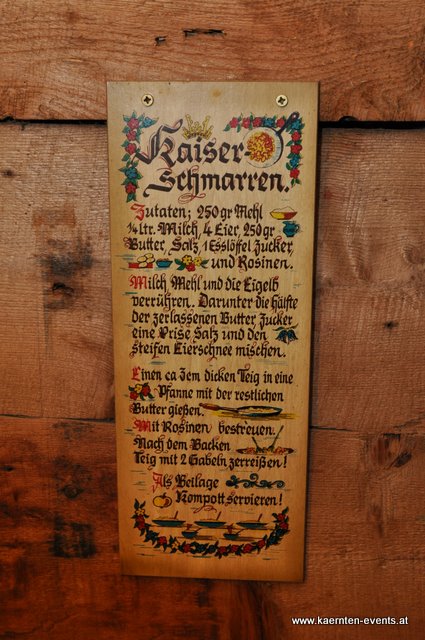 Kaiser-
Schmarren.
Zutaten; 250 gr Mehl
¼ ltr. Milch, 4 Eier, 250 gr
Butter, Salz, 1 Esslöffel Zucker,
und Rosinen.
Milch, Mehl und die Eigelb
verrühren. Darunter die hälfte
der zerlassenen Butter, Zucker
eine Prise Salz und den
steifen Eierschnee mischen.
Einen ca 3cm dicken Teig in eine
Pfanne mit der restlichen
Butter gießen.
Mit Rosinen bestreuen.
Nach dem Backen
Teig mit 2 Gabeln zerreißen!
Als Beilage
Kompott servieren!
www.kaernten-events.at